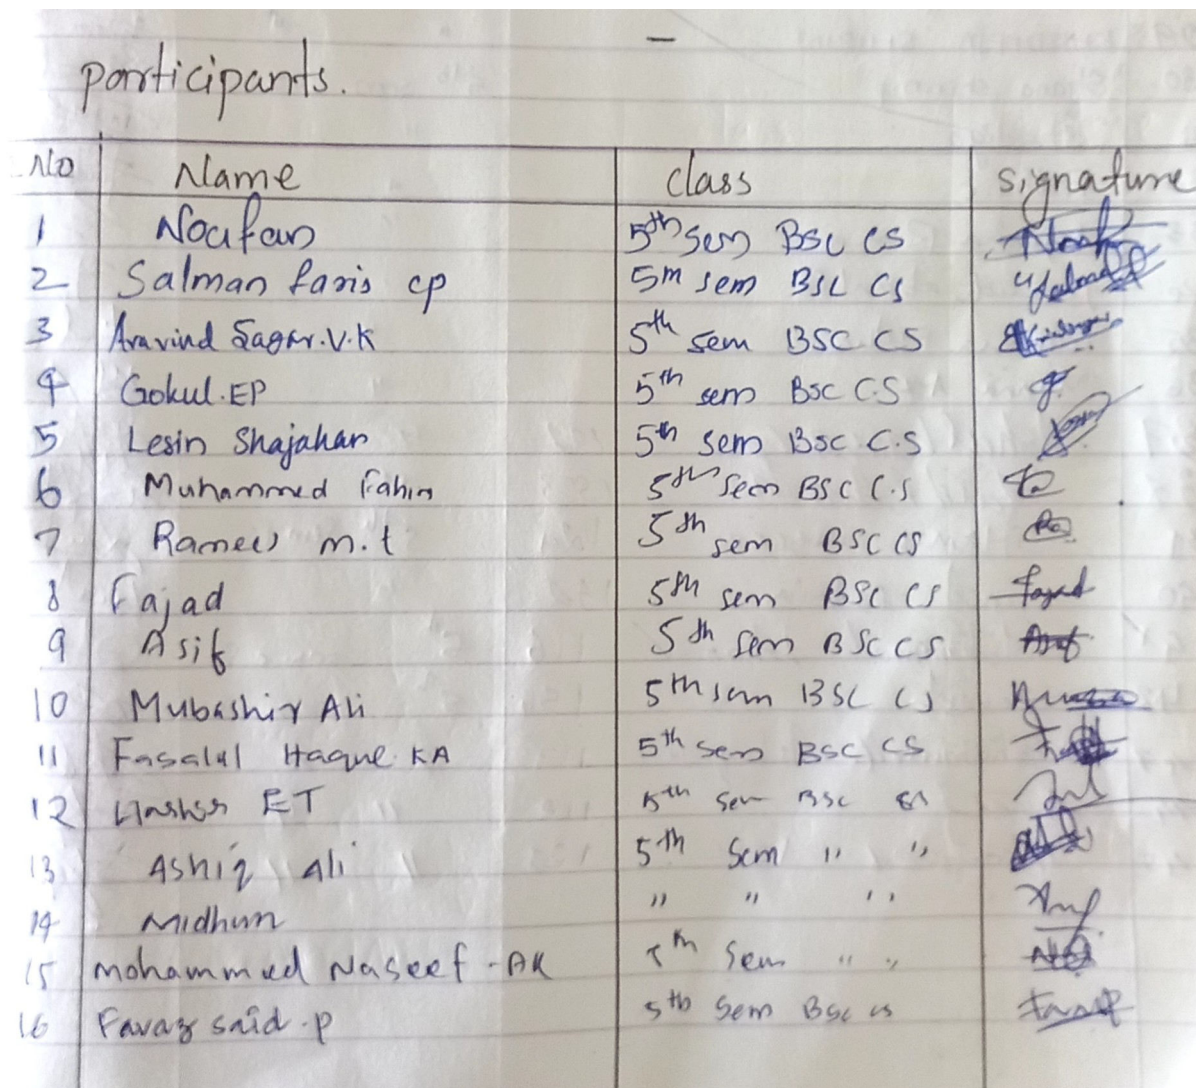 participants.
No Name class signature
1 Noufan 5th sem BSC CS
2 Salman faris cp 5th sem BSC CS
3 Aravind Sagar.V.K 5th sem BSC CS
4 Gokul.EP 5th sem BSC C.S
5 Lesin Shajahan 5th sem BSC C.S
6 Muhammed Fahim 5th sem BSC C.S
7 Ramees m.t 5th sem BSC CS
8 Fajad 5th sem BSC CS Fajad
9 Asif 5th sem BSC CS Asif
10 Mubashir Ali 5th sem BSC CS
11 Fasalul Haque.KA 5th sem BSC CS
12 ET 5th sem BSC
13 Ashiq Ali 5th sem " "
14 Midhun " " "
15 Mohammed Naseef -AK 5th sem " "
16 Favaz said.p 5th sem BSC cs